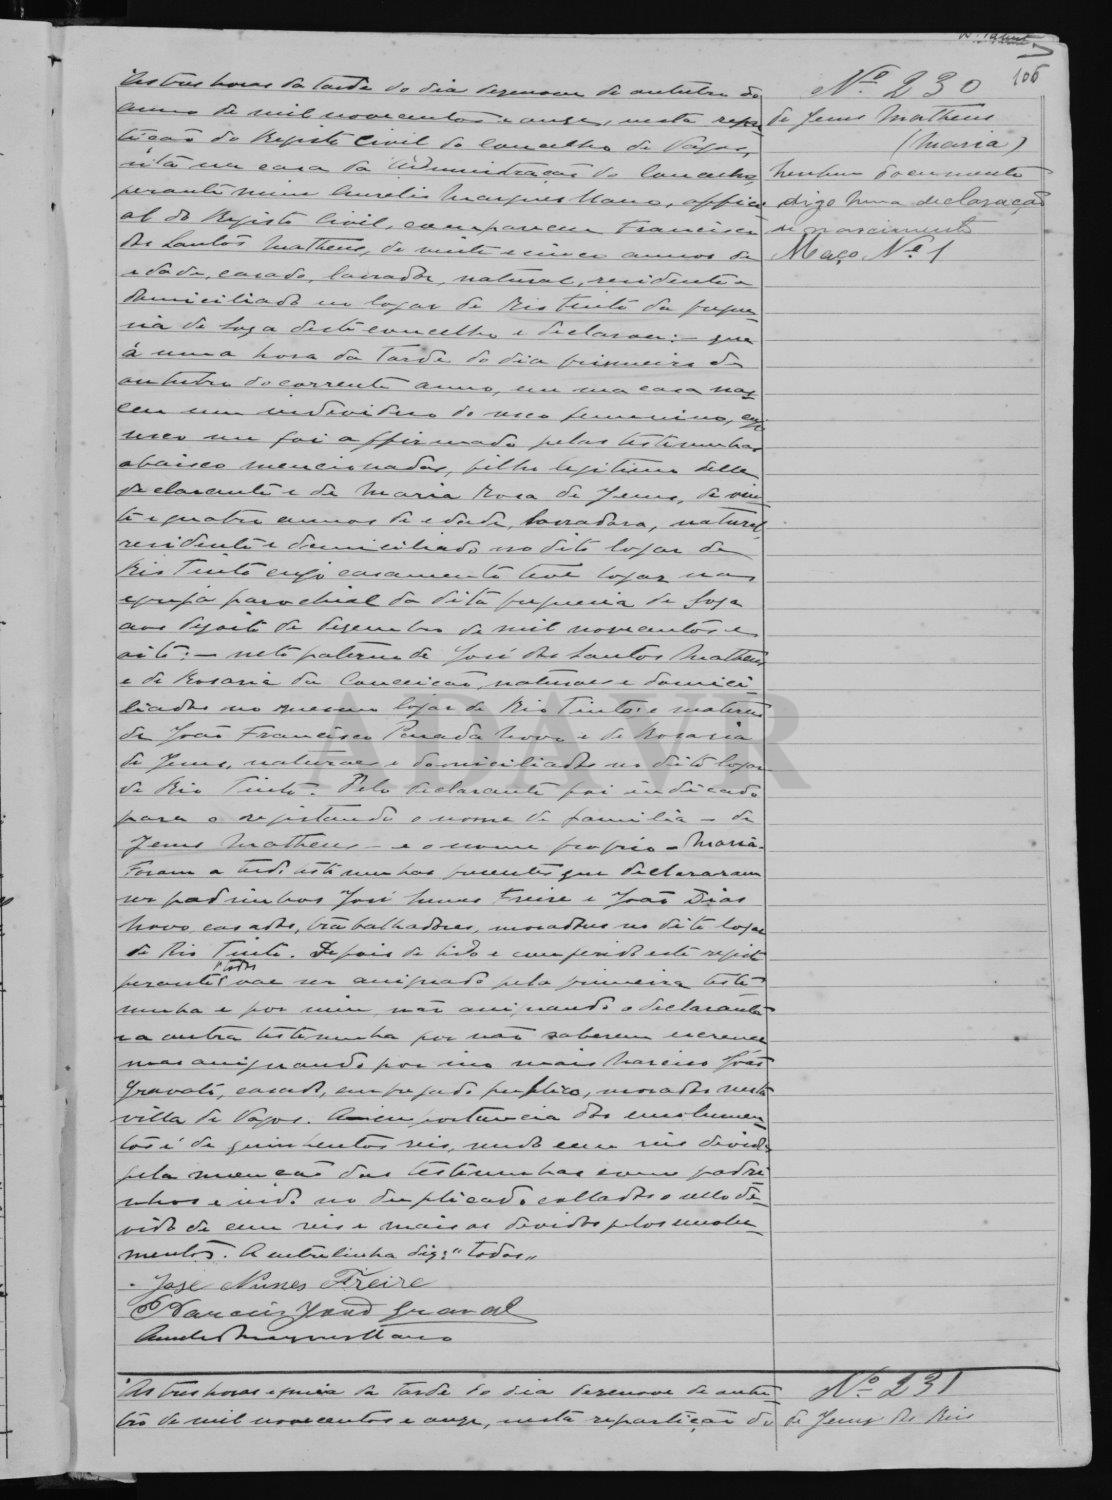 106
Nº 230
de Jesus Matheus
(Maria)
Nenhum documento
digo huma declaração
de nascimento
Maço Nº 1
Ás tres horas da tarde do dia dezenove de outubro do
anno de mil novecentos e onze, nesta repar-
tição do Registo Civil do concelho de Vagos,
sita na casa da Administração do Concelho,
perante mim Aurelio Marques Mano, offici-
al do Registo Civil, compareceu Francisco
dos Santos Matheus, de vinte e cinco annos de
edade, casado, lavrador, natural, residente e
domiciliado no logar de Rio Tinto da fregue-
sia de Soza deste concelho e declarou: — que
á uma hora da tarde do dia primeiro de
outubro do corrente anno, em sua casa nas-
ceu um individuo do sexo femenino, cujo
sexo me foi affirmado pelas testemunhas
abaixo mencionadas, filho legitimo delle
declarante e de Maria Rosa de Jesus, de vin-
te e quatro annos de edade, lavradora, natural,
residente e domiciliada no dito logar de
Rio Tinto cujo casamento teve logar na
egreja parochial da dita freguesia de Soza
aos dezoito de dezembro de mil novecentos e
oito: — neto paterno de José dos Santos Matheus
e de Rosaria da Conceição, naturaes e domici-
liados no mesmo logar de Rio Tinto: e materno
de João Francisco Novo e de Rosaria
de Jesus, naturaes e domiciliados no dito logar
de Rio Tinto. Pelo declarante foi indicado
para o registando o nome de familia — de
Jesus Matheus — e o nome proprio — Maria —
Foram a tudo testemunhas presentes que declararam
ser padrinhos José Nunes Freire e João Dias
Novo, casados, trabalhadores, moradores no dito logar
de Rio Tinto. Depois de lido e conferido este registo
perante todos vae ser assignado pela primeira teste-
munha e por mim, não assignando o declarante
e a outra testemunha por não saberem escrever
mas assignando por isso mais Narciso João
Gravato, casado, empregado publico, morador nesta
villa de Vagos. A importancia dos emolumen-
tos é de quinhentos reis, sendo cem reis devidos
pela menção das testemunhas como padri-
nhos e indo no duplicado collados o sello de-
vido de cem reis e mais os devidos pelos emolu-
mentos. A entrelinha diz: "todos"
José Nunes Freire
Narciso João Gravato
Aurelio Marques Mano
ADAVR
Ás tres horas e meia da tarde do dia dezenove de outu-
bro de mil novecentos e onze, nesta repartição do
Nº 231
de Jesus dos Reis